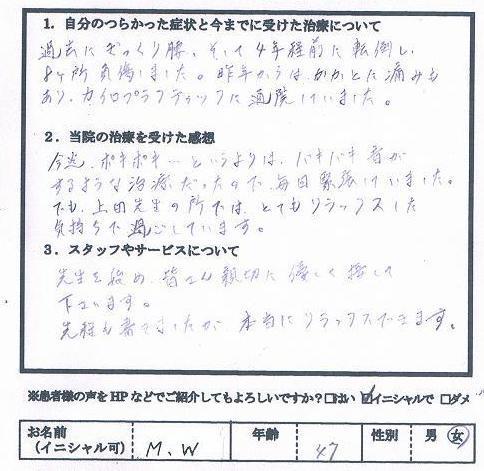 1. 自分のつらかった症状と今までに受けた治療について
過去にぎっくり腰、そして4年程前に転倒し
8ヶ所負傷しました。昨年からは、かかとに痛みも
あり、カイロプラクティックに通院していました。
2. 当院の治療を受けた感想
今迄、ポキポキ…というよりは、バキバキ音が
するような治療だったので、毎回緊張していました。
でも、上田先生の所では、とてもリラックスした
気持ちで過ごしています。
3. スタッフやサービスについて
先生を始め、皆さん親切に優しく接して
下さいます。
先程も書きましたが、本当にリラックスできます。
※患者様の声をHPなどでご紹介してもよろしいですか?□はい ☑イニシャルで □ダメ
お名前 (イニシャル可) M、W 年齢 47 性別 男 女